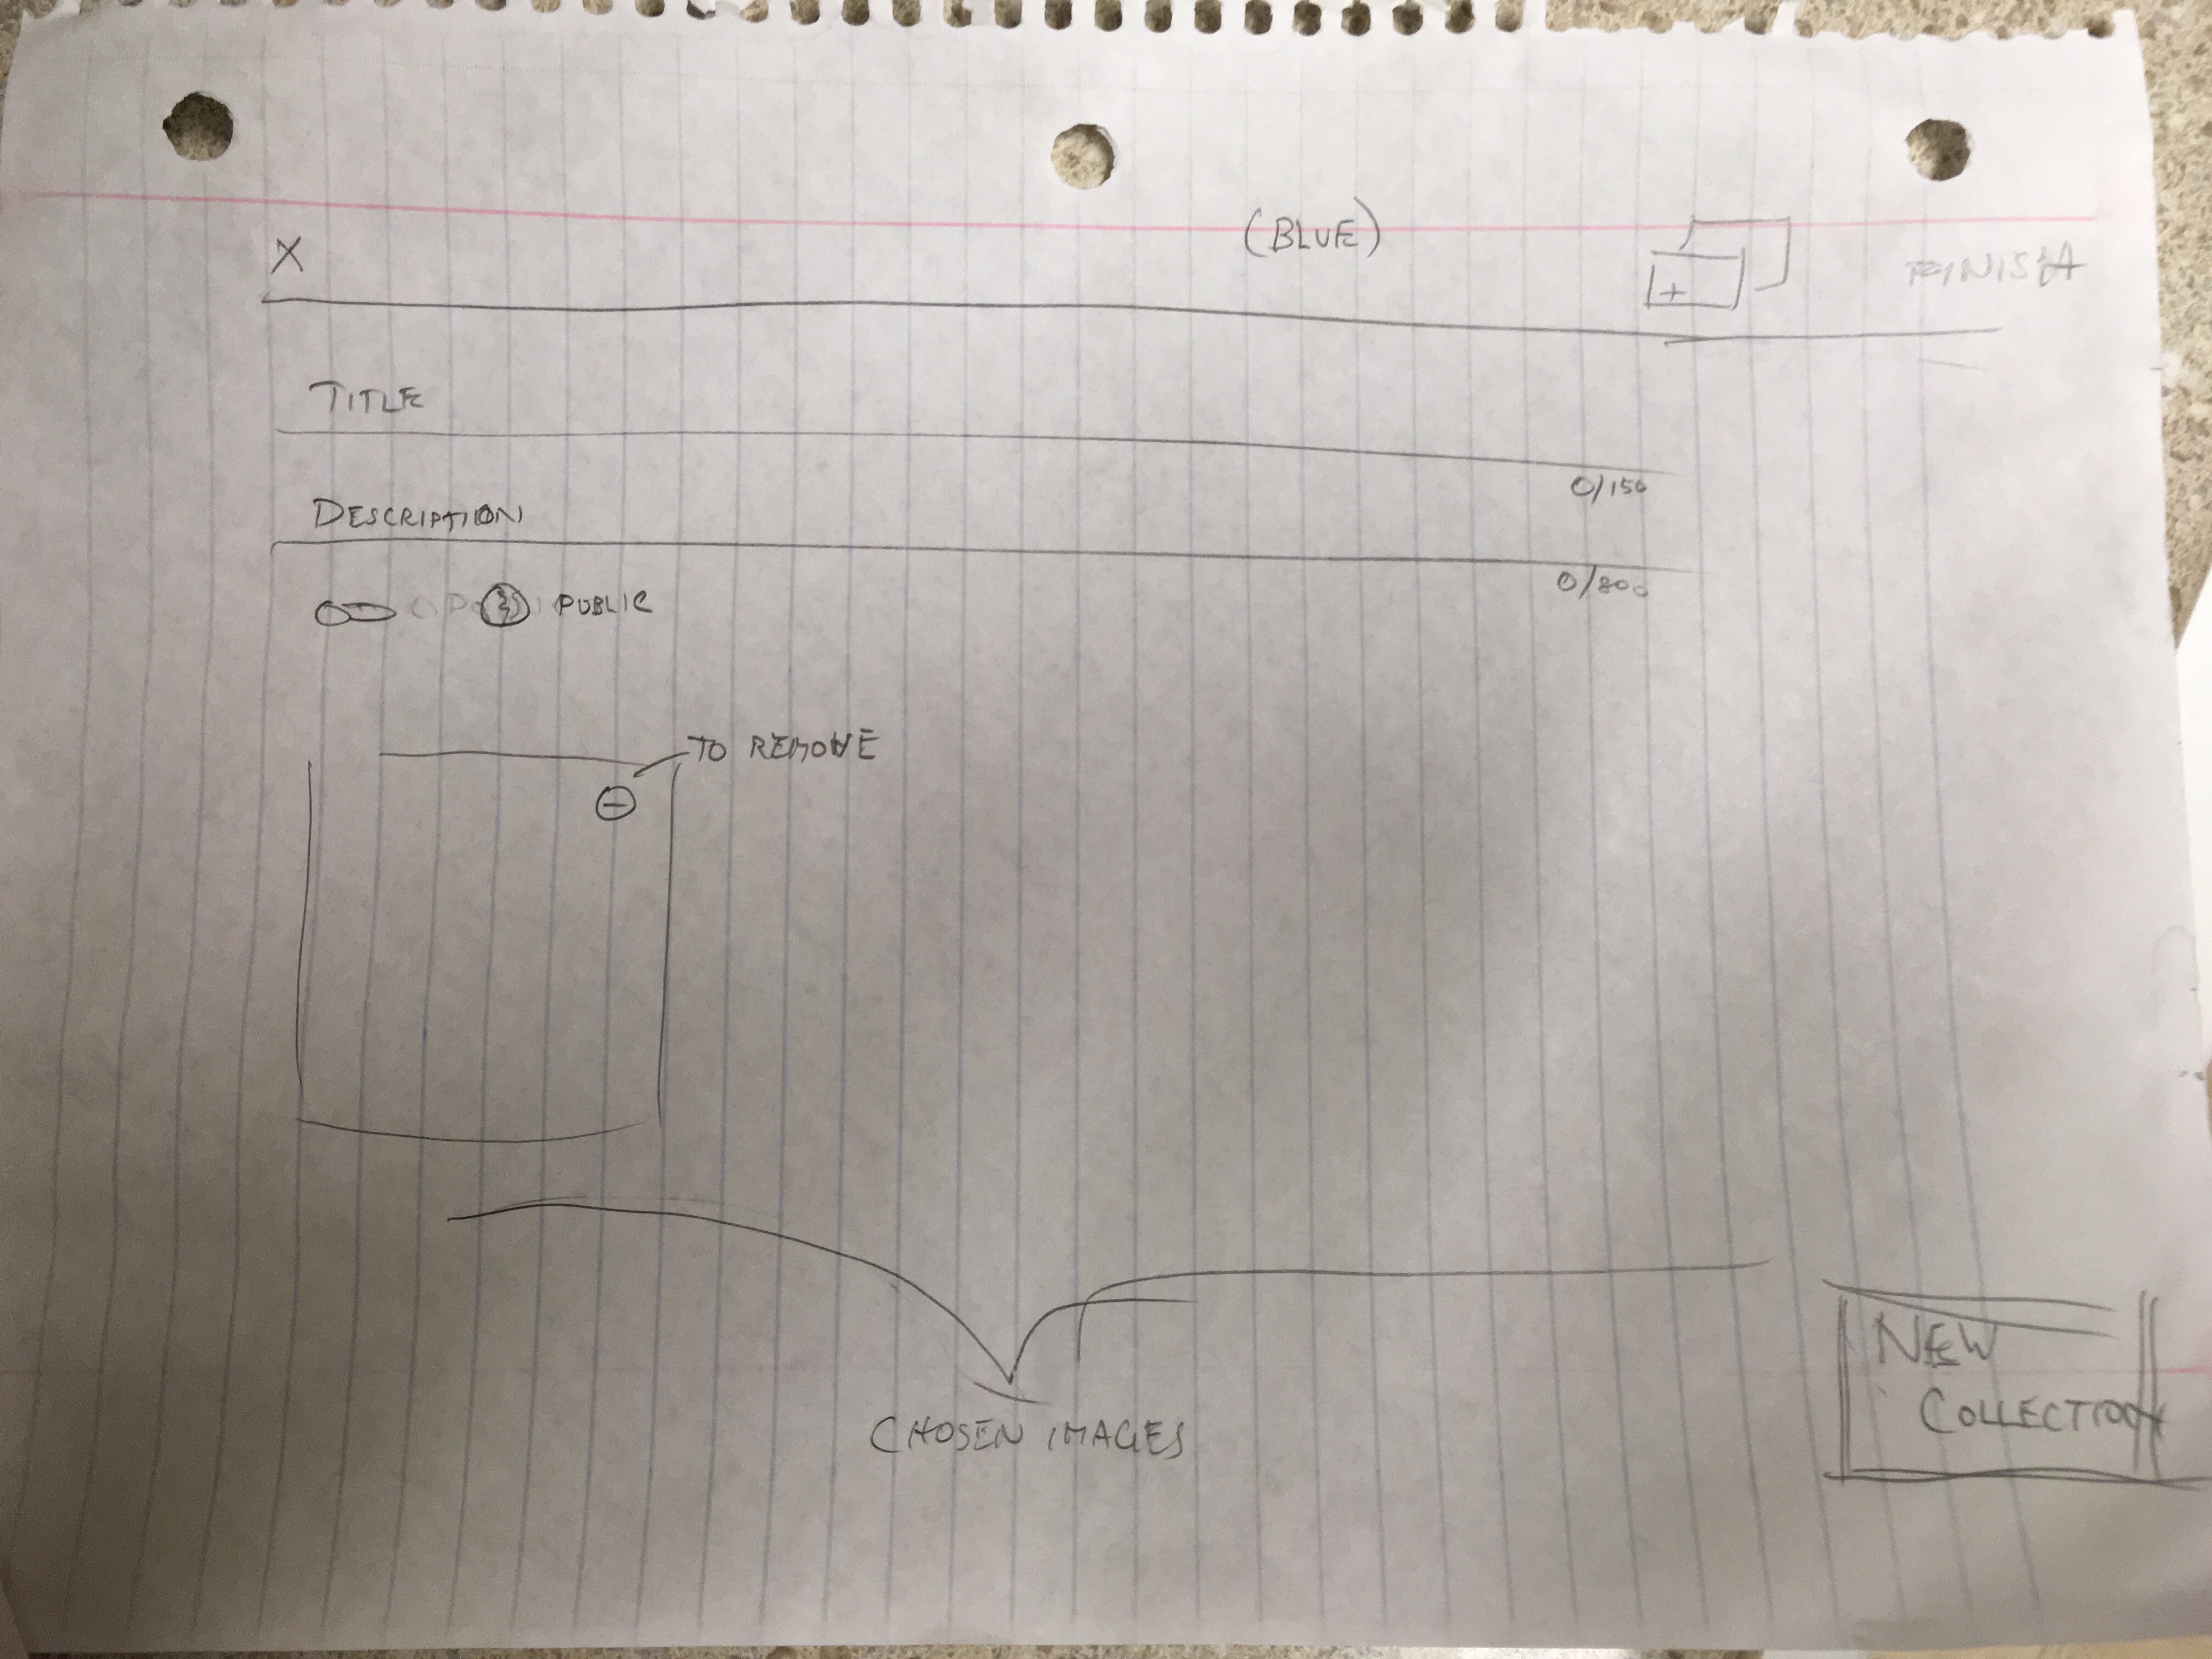 X
(BLUE)
+
FINISH
TITLE
0/150
DESCRIPTION
0/800
PUBLIC
TO REMOVE
CHOSEN IMAGES
NEW
COLLECTION